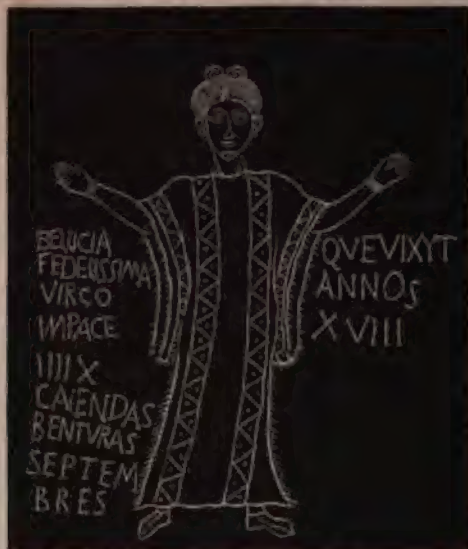 BELLICIA
FEDELISSIMA
VIRCO
IMPACE
IIIIX
CAIENDAS
BENTVRAS
SEPTEM
BRES
QVEVIXYT
ANNOS
XVIII